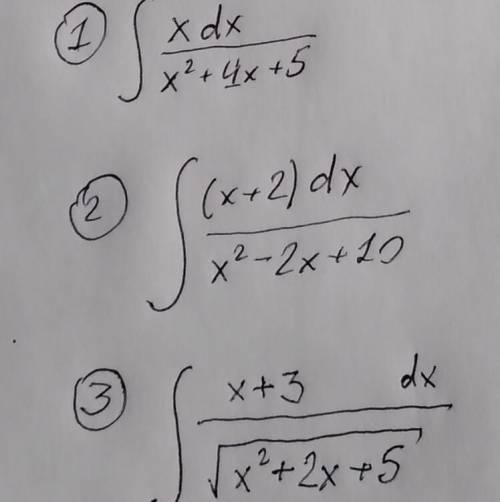 ① ∫ x dx
x² + 4x + 5
② ∫ (x+2) dx
x² - 2x + 10
③ ∫ x + 3 dx
√x² + 2x + 5